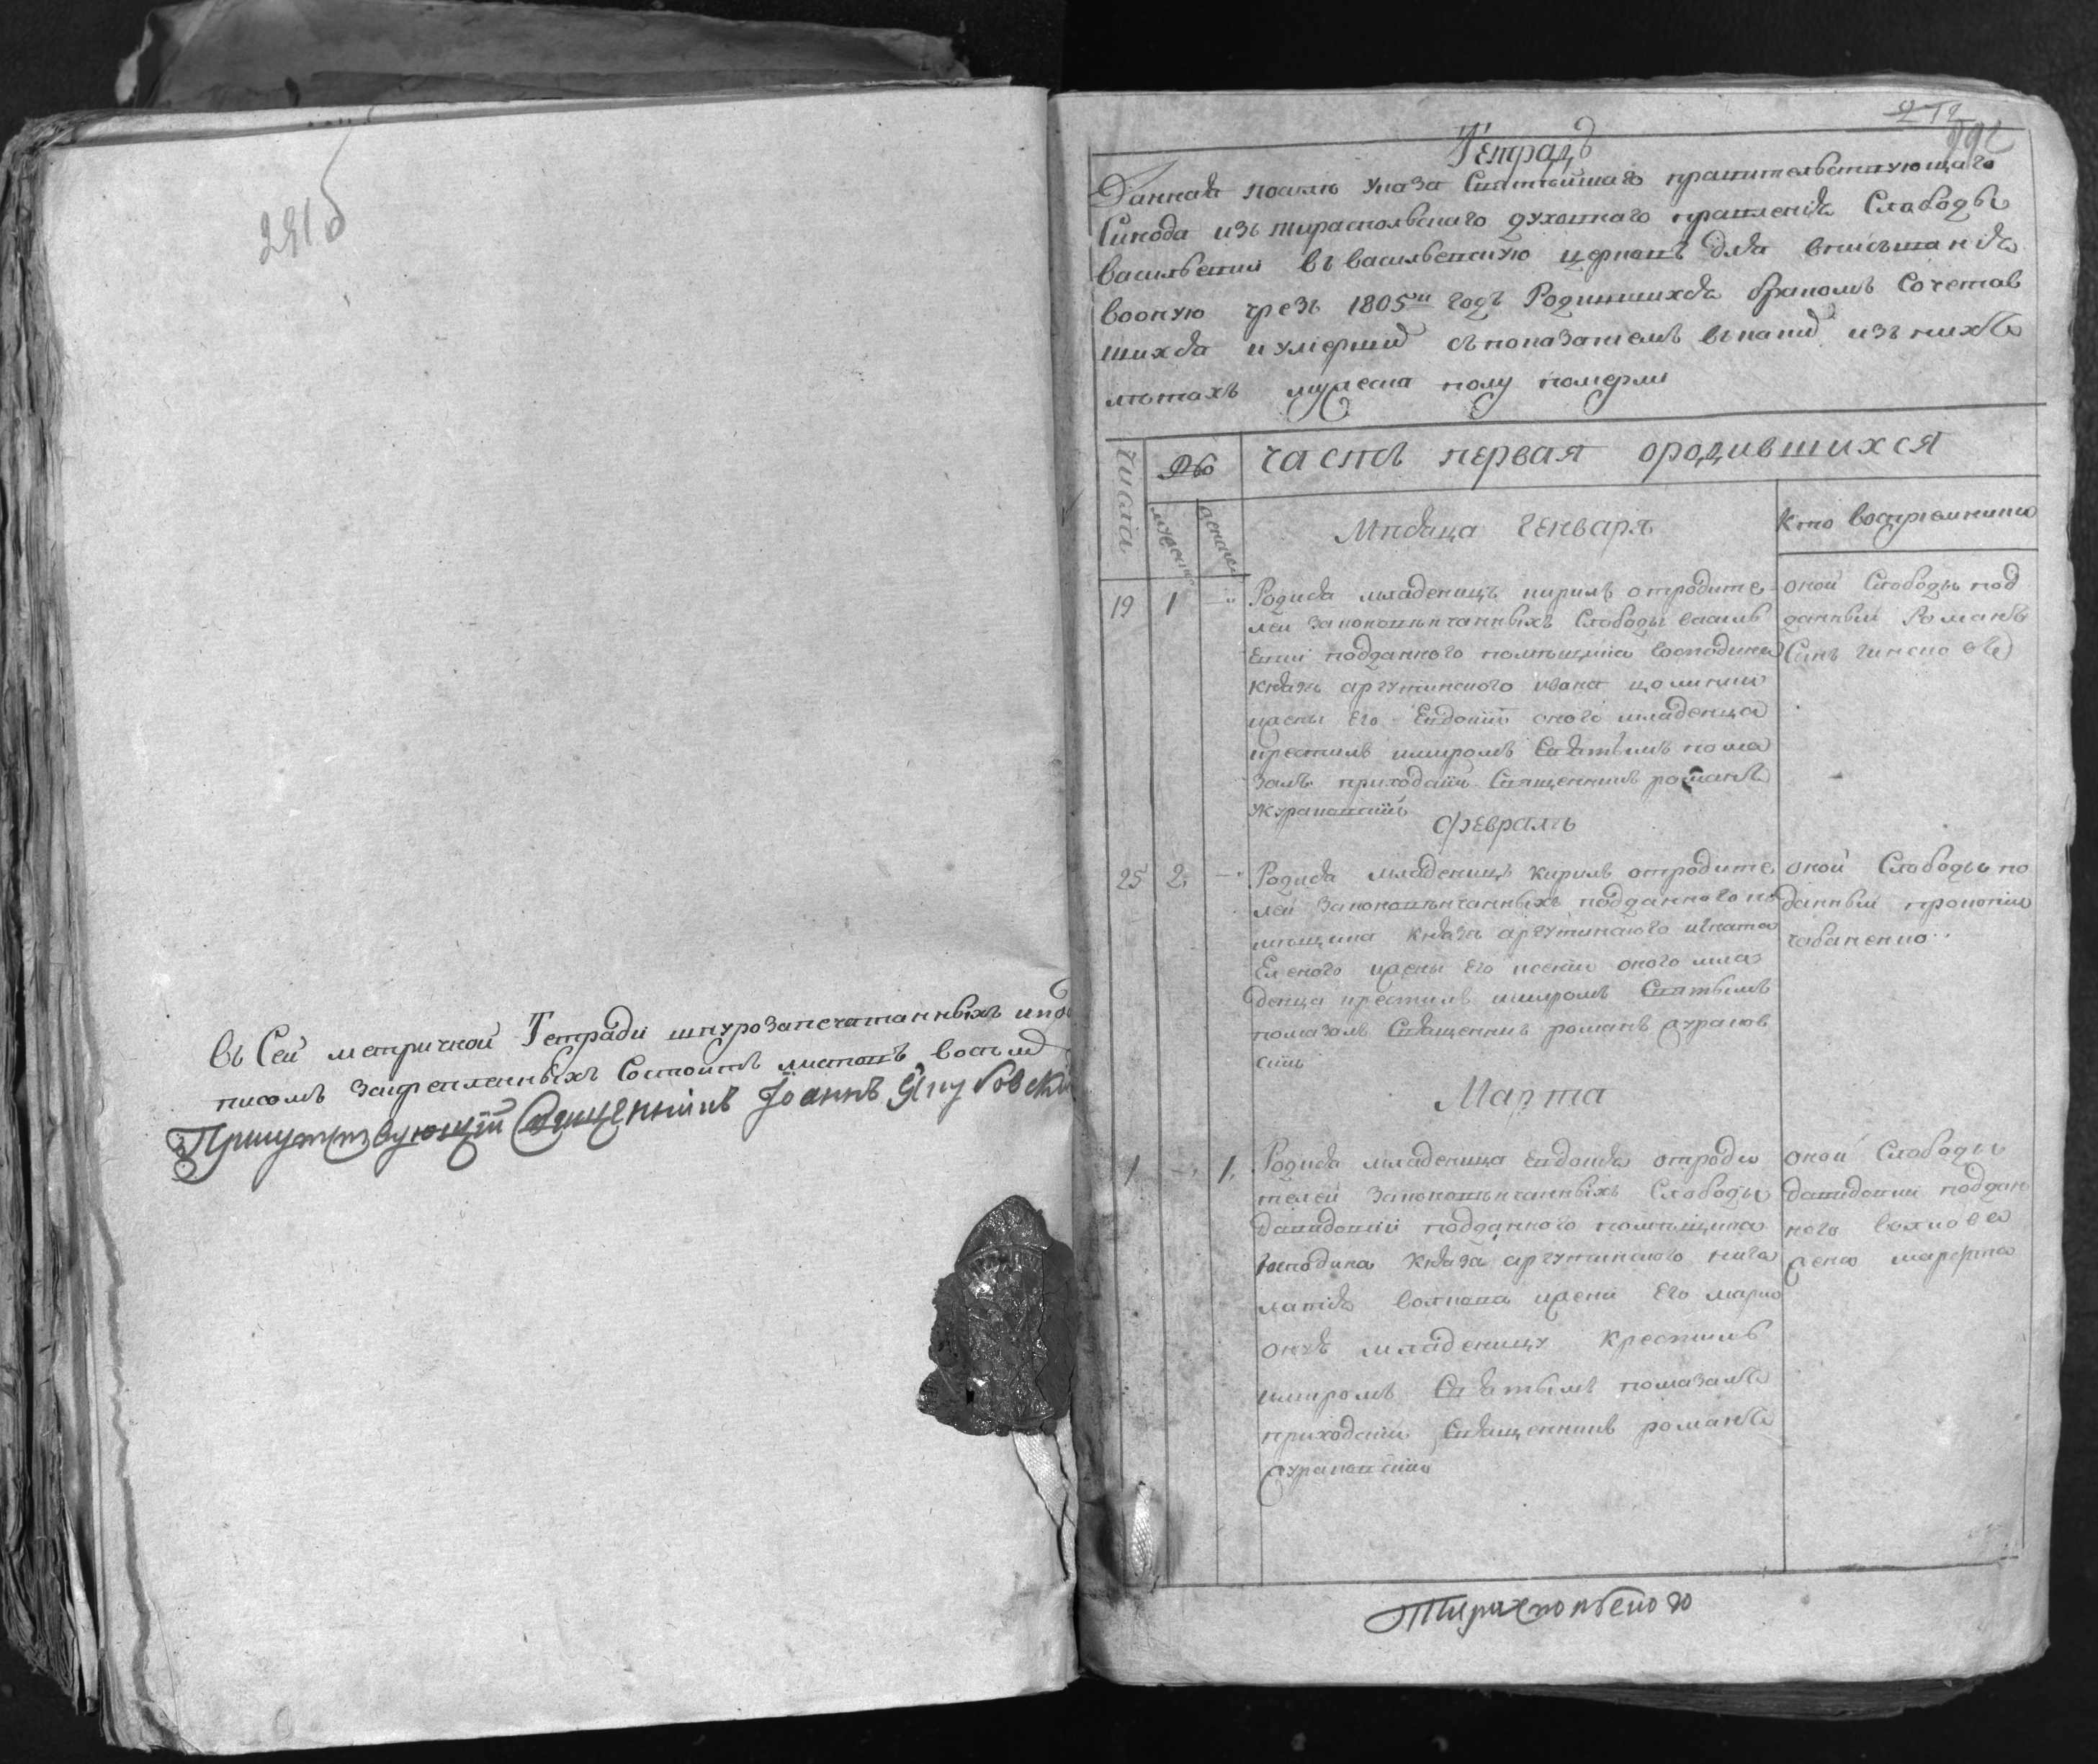 291б
Въ Сей метричной Тетради шнурозапечатанныхъ
писомъ закрепленныхъ Состоитъ листовъ восем
Присутствующий Священникъ Іоаннъ Якубовский
272
292
Тетрадь
Данная посилѣ указа Святѣйшаго правителствующаго
Синода изъ тираспольскаго духовнаго правления Слободы
василвевки въ василвевскую церковъ для вписывания
вооную чрезъ 1805й годъ Родившихся бракомъ Сочетав
шихся иумерши съпоказаниемъ въкаких изънихъ
лѣтахъ мужеска полу померли
числа
часть первая ородившихся
мужеска
женска
Мѣсяца генваря
Кто восприемники
19 1 Родися младенецъ кирилъ отродите
лей законовѣнчанныхъ Слободы василв
евки подданного помѣщика господина
князя аргутинского ивана
жены его Евдокии оного младенца
крестилъ имиромъ Святымъ пома
залъ приходский Священникъ романъ
журановский
оной Слободы под
данный Романъ
февраль
25 2 Родися младенецъ кирилъ отродите
лей законовѣнчанныхъ подданного по
мѣщика князя аргутинского игната
жены его ксении оного мла
денца крестилъ имиромъ Святымъ
помазалъ Священникъ романъ журанов
ский
оной Слободы по
данный прокопий
чабаненко
Марта
1 1 Родися младеница евдокия отроди
телей законовѣнчанныхъ Слободы
давидовки подданного помѣщика
господина князя аргутинского
жены его марии
онуя младеницу крестилъ
имиромъ Святымъ помазалъ
приходский Священникъ романъ
журановский
оной Слободы
давидовки поддан
ного волкова
жена марфа
Тираспольского